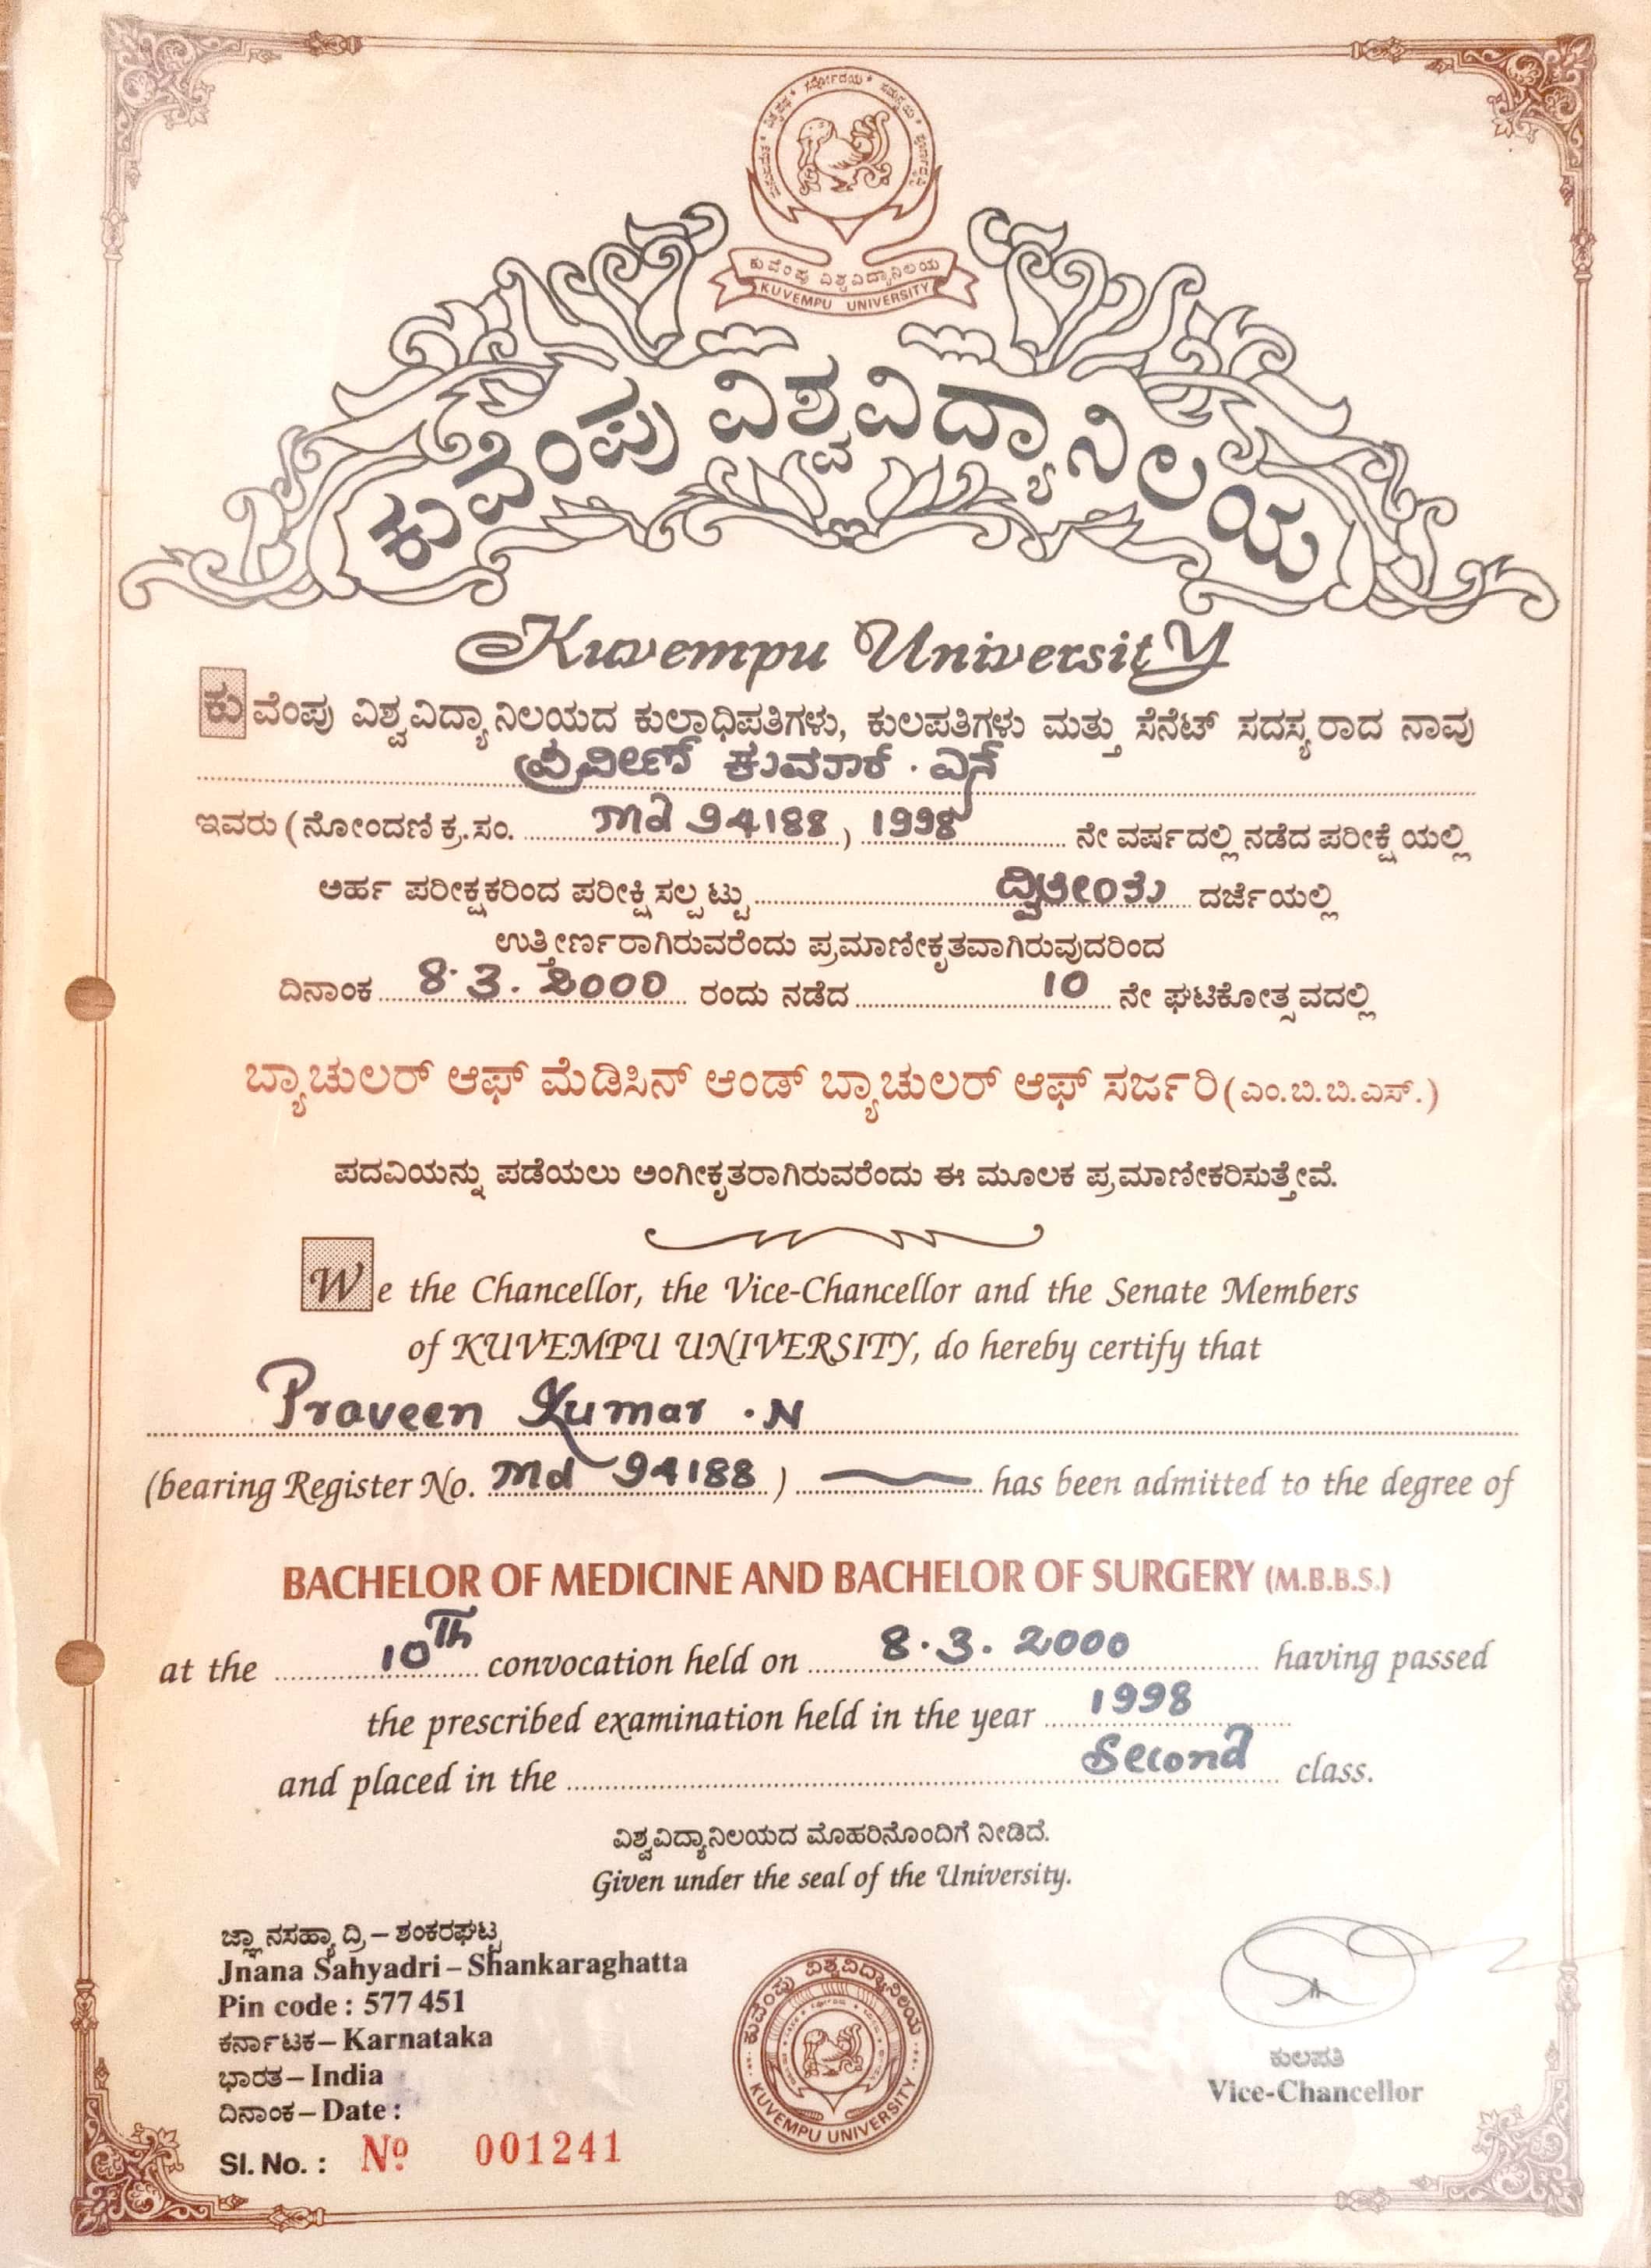 ಕುವೆಂಪು ವಿಶ್ವವಿದ್ಯಾನಿಲಯ
KUVEMPU UNIVERSITY
ಕುವೆಂಪು ವಿಶ್ವವಿದ್ಯಾನಿಲಯ
Kuvempu University
ಕುವೆಂಪು ವಿಶ್ವವಿದ್ಯಾನಿಲಯದ ಕುಲಾಧಿಪತಿಗಳು, ಕುಲಪತಿಗಳು ಮತ್ತು ಸೆನೆಟ್ ಸದಸ್ಯರಾದ ನಾವು
ಪ್ರವೀಣ್ ಕುಮಾರ್ . ಎನ್
ಇವರು (ನೋಂದಣಿ ಕ್ರ.ಸಂ. Md 94188, ) 1998 ನೇ ವರ್ಷದಲ್ಲಿ ನಡೆದ ಪರೀಕ್ಷೆಯಲ್ಲಿ
ಅರ್ಹ ಪರೀಕ್ಷಕರಿಂದ ಪರೀಕ್ಷಿಸಲ್ಪಟ್ಟು ದ್ವಿತೀಯ ದರ್ಜೆಯಲ್ಲಿ
ಉತ್ತೀರ್ಣರಾಗಿರುವರೆಂದು ಪ್ರಮಾಣೀಕೃತವಾಗಿರುವುದರಿಂದ
ದಿನಾಂಕ 8.3.2000 ರಂದು ನಡೆದ 10 ನೇ ಘಟಿಕೋತ್ಸವದಲ್ಲಿ
ಬ್ಯಾಚುಲರ್ ಆಫ್ ಮೆಡಿಸಿನ್ ಆಂಡ್ ಬ್ಯಾಚುಲರ್ ಆಫ್ ಸರ್ಜರಿ (ಎಂ.ಬಿ.ಬಿ.ಎಸ್.)
ಪದವಿಯನ್ನು ಪಡೆಯಲು ಅಂಗೀಕೃತರಾಗಿರುವರೆಂದು ಈ ಮೂಲಕ ಪ್ರಮಾಣೀಕರಿಸುತ್ತೇವೆ.
We the Chancellor, the Vice-Chancellor and the Senate Members
of KUVEMPU UNIVERSITY, do hereby certify that
Praveen Kumar . N
(bearing Register No. Md 94188 ) has been admitted to the degree of
BACHELOR OF MEDICINE AND BACHELOR OF SURGERY (M.B.B.S.)
at the 10th convocation held on 8.3.2000 having passed
the prescribed examination held in the year 1998
and placed in the Second class.
ವಿಶ್ವವಿದ್ಯಾನಿಲಯದ ಮೊಹರಿನೊಂದಿಗೆ ನೀಡಿದೆ.
Given under the seal of the University.
ಜ್ಞಾನಸಹ್ಯಾದ್ರಿ – ಶಂಕರಘಟ್ಟ
Jnana Sahyadri – Shankaraghatta
Pin code : 577 451
ಕರ್ನಾಟಕ – Karnataka
ಭಾರತ – India
ದಿನಾಂಕ – Date :
Sl. No. : Nº 001241
ಕುವೆಂಪು ವಿಶ್ವವಿದ್ಯಾನಿಲಯ
KUVEMPU UNIVERSITY
ಕುಲಪತಿ
Vice-Chancellor